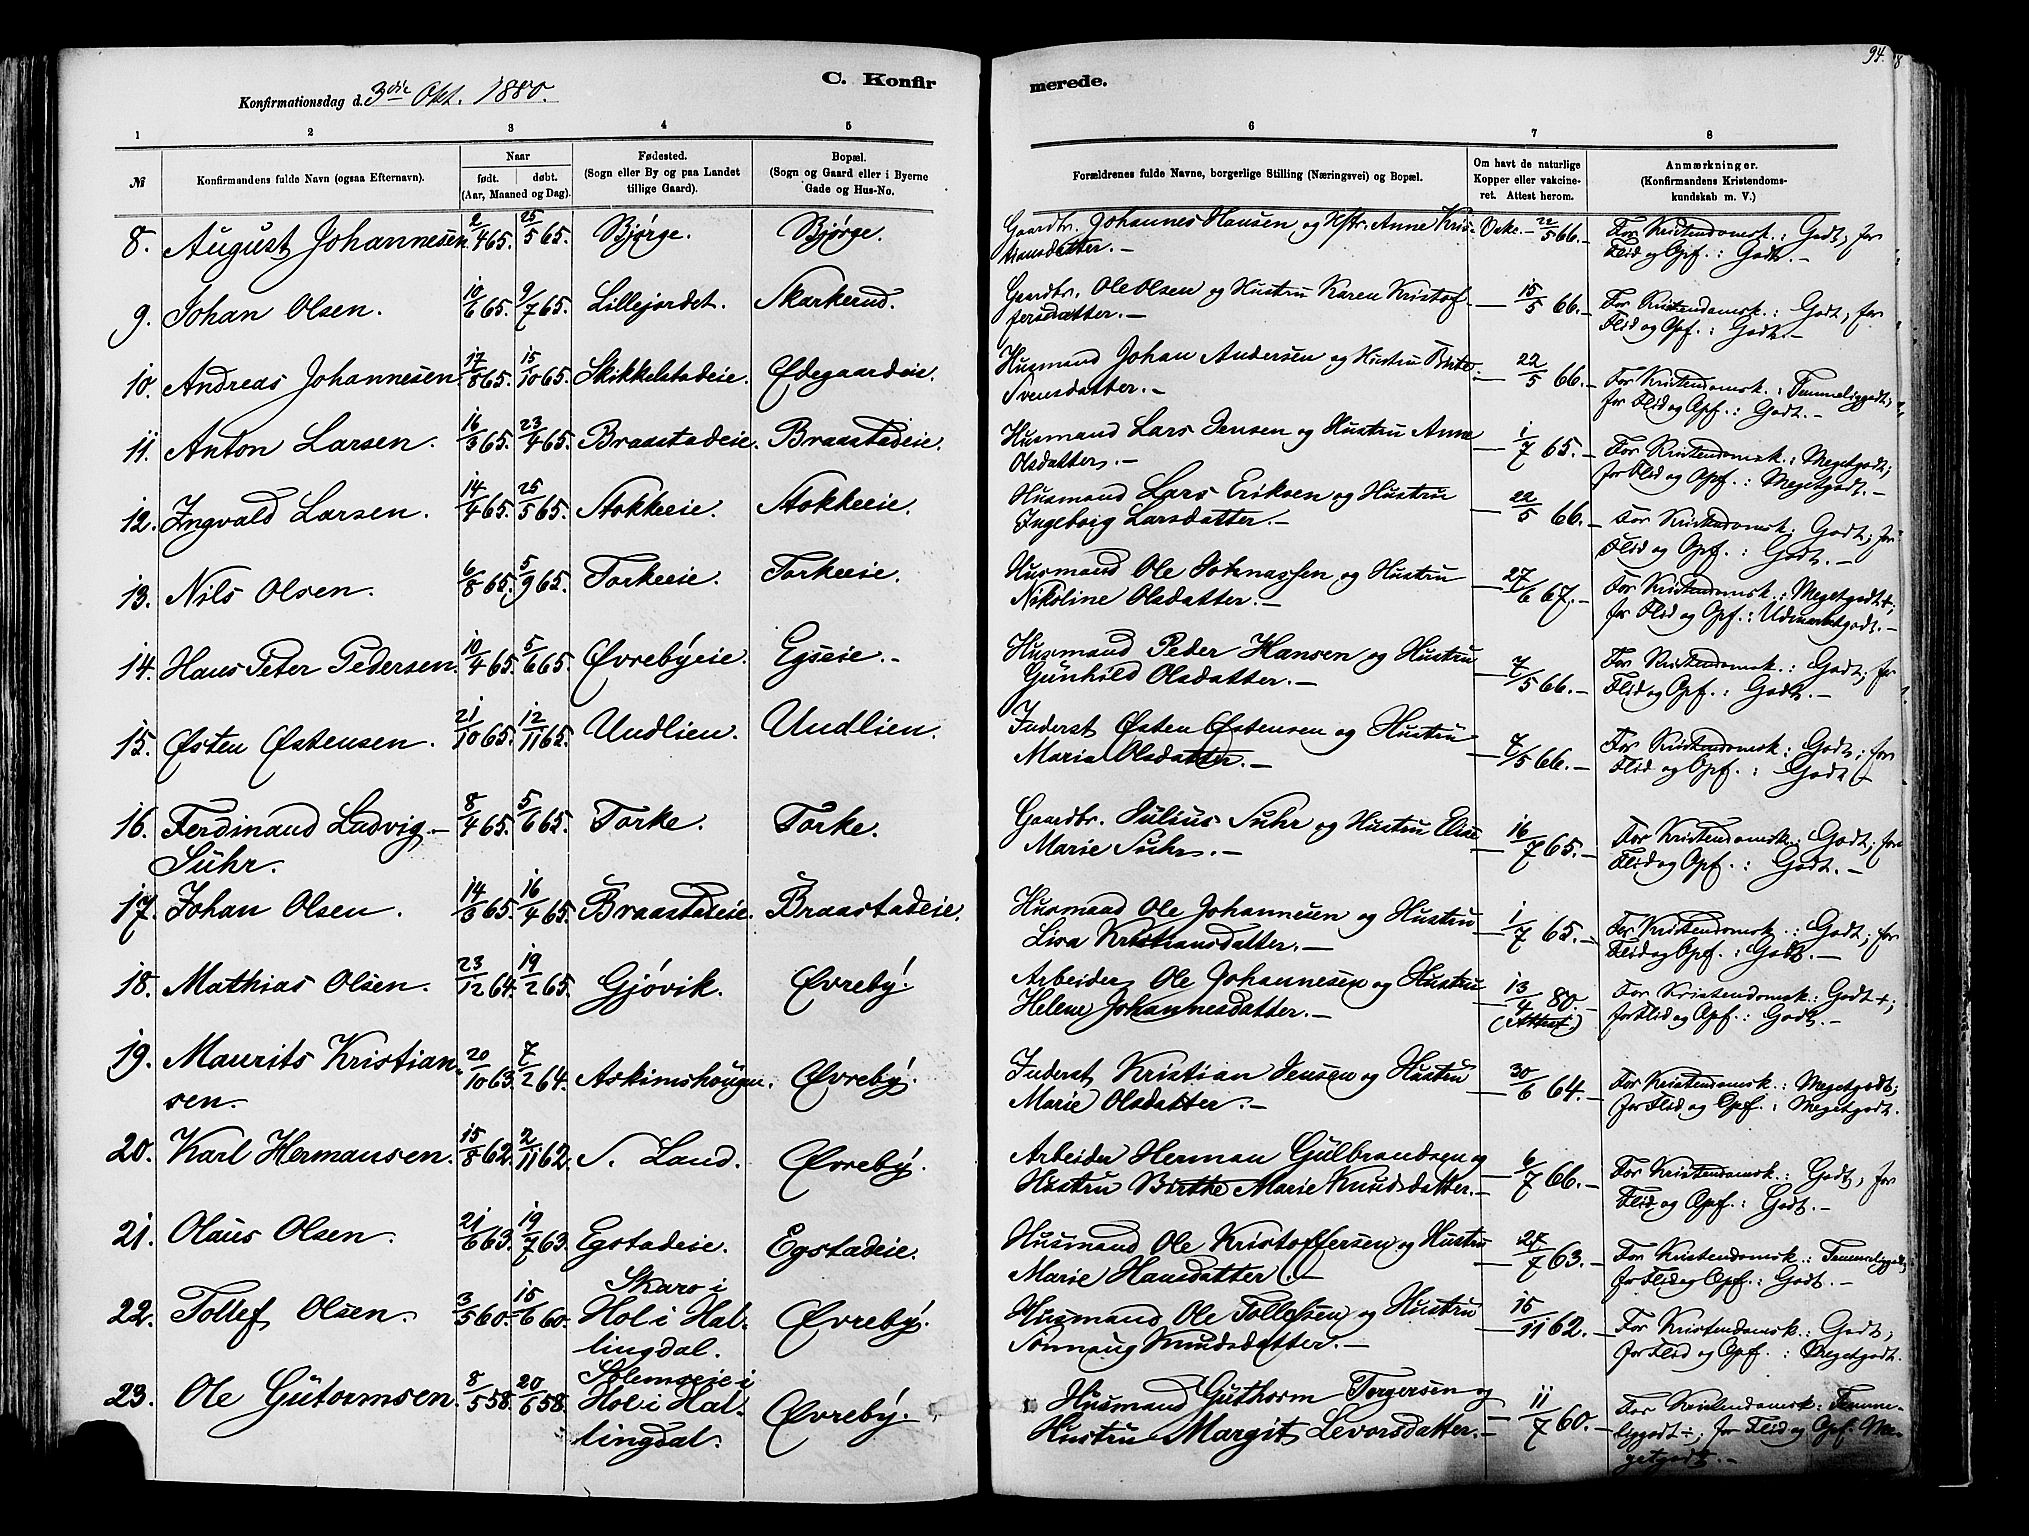 94.
C. Konfir
merede.
Konfirmationsdag d. 3die Okt. 1880.
1 2 3 4 5 6 7 8
№
Konfirmandens fulde Navn (ogsaa Efternavn).
Naar
født. døbt.
(Aar, Maaned og Dag).
Fødested.
(Sogn eller By og paa Landet
tillige Gaard).
Bopæl.
(Sogn og Gaard eller i Byerne
Gade og Hus-No.
Forældrenes fulde Navne, borgerlige Stilling (Næringsvei) og Bopæl.
Om havt de naturlige
Kopper eller vakcine-
ret. Attest herom.
Anmærkninger.
(Konfirmandens Kristendoms-
kundskab m. V.)
8. August Johannesen 2/4 65. 25/5 65. Bjørge. Bjørge. Gaardbr. Johannes Hansen og Hstr. Anne Kris- Vakc. – 22/5 66. – For Kristendomsk.: Godt; for
tiansdatter. – Flid og Opf.: Godt. –
9. Johan Olsen. 10/6 65. 9/7 65. Lillejordet. Skarkerud. Gaardbr. Ole Olsen og Hustru Karen Kristof- – 15/5 66. – For Kristendomsk.: Godt; for
fersdatter. – Flid og Opf.: Godt. –
10. Andreas Johannesen. 17/8 65. 15/10 65. Skikkelstadeie. Ødegaardeie. Husmand Johan Andersen og Hustru Birte – 22/5 66. – For Kristendomsk.: Temmeliggodt;
Svensdatter. – for Flid og Opf.: Godt. –
11. Anton Larsen. 16/3 65. 23/4 65. Braastadeie. Braastadeie. Husmand Lars Jensen og Hustru Anne – 1/7 65. – For Kristendomsk.: Megetgodt;
Olsdatter. – for Flid og Opf.: Megetgodt. –
12. Ingvald Larsen. 14/4 65. 25/5 65. Stokkeeie. Stokkeeie. Husmand Lars Eriksen og Hustru – 22/5 66. – For Kristendomsk: Godt; for
Ingeborg Larsdatter. – Flid og Opf.: Godt. –
13. Nils Olsen. 6/8 65. 5/9 65. Torkeeie. Torkeeie. Husmand Ole Johnassen og Hustru – 27/6 67. – For Kristendomsk.: Megetgodt+;
Nikoline Olsdatter. – for Flid og Opf.: Udmærketgodt. –
14. Hans Peter Pedersen. 10/4 65. 5/6 65. Øvrebyeie. Egseie. – Husmand Peder Hansen og Hustru – 7/5 66. – For Kristendomsk.: Godt; for
Gunhild Olsdatter. – Flid og Opf.: Godt. –
15. Østen Østensen. 21/10 65. 12/11 65. Undlien. Undlien. Inderst Østen Østensen og Hustru – 7/5 66. – For Kristendomsk.: Godt; for
Maria Olsdatter. – Flid og Opf.: Godt –
16. Ferdinand Ludvig – 8/4 65. 5/6 65. Torke. Torke. Gaardbr. Julius Suhr og Hustru Elise – 16/7 65. – For Kristendomsk.: Godt; for
Suhr. Marie Suhr. – Flid og Opf.: Godt. –
17. Johan Olsen. 14/3 65. 16/4 65. Braastadeie. Braastadeie. Husmand Ole Johannesen og Hustru – 1/7 65. – For Kristendomsk.: Godt; for
Lisa Kristiansdatter. – Flid og Opf.: Godt. –
18. Mathias Olsen. 23/12 64. 19/2 65. Gjøvik. Øvreby. Arbeider Ole Johannesen og Hustru – 13/4 80. – For Kristendomsk.: Godt+;
Helene Johannesdatter. – (Attest) for Flid og Opf.: Godt. –
19. Maurits Kristian- 20/10 63. 7/2 64. Askimshougen. Øvreby. Inderst Kristian Jensen og Hustru – 30/6 64. – For Kristendomsk.: Megetgodt;
sen. Marie Olsdatter. – for Flid og Opf.: Megetgodt.
20. Karl Hermansen. 15/8 62. 2/11 62. S. Land. Øvreby. Arbeider Herman Gulbrandsen og – 6/7 66. – For Kristendomsk.: Godt; for
Hustru Birthe Marie Knudsdatter. – Flid og Opf.: Godt. –
21. Olaus Olsen. 21/6 63. 19/7 63. Egstadeie. Egstadeie. Husmand Ole Kristoffersen og Hustru – 27/7 63. – For Kristendomsk.: Temmeliggodt;
Marie Hansdatter. – for Flid og Opf.: Godt. –
22. Tollef Olsen. 3/5 60. 15/6 60. Skaro i Øvreby. Husmand Ole Tollefsen og Hustru – 15/11 62. – For Kristendomsk.: Godt;
Hol i Hal- Sønnaug Knudsdatter. – for Flid og Opf.: Megetgodt.
lingdal.
23. Ole Gutormsen. 8/5 58. 20/6 58. Solemseie i Øvreby. Husmand Guthorm Torgersen og – 11/7 60. – For Kristendomsk.: Temme-
Hol i Hal- Hustru Margit Levorsdatter. – liggodt÷; for Flid og Opf: Me-
lingdal. getgodt. –